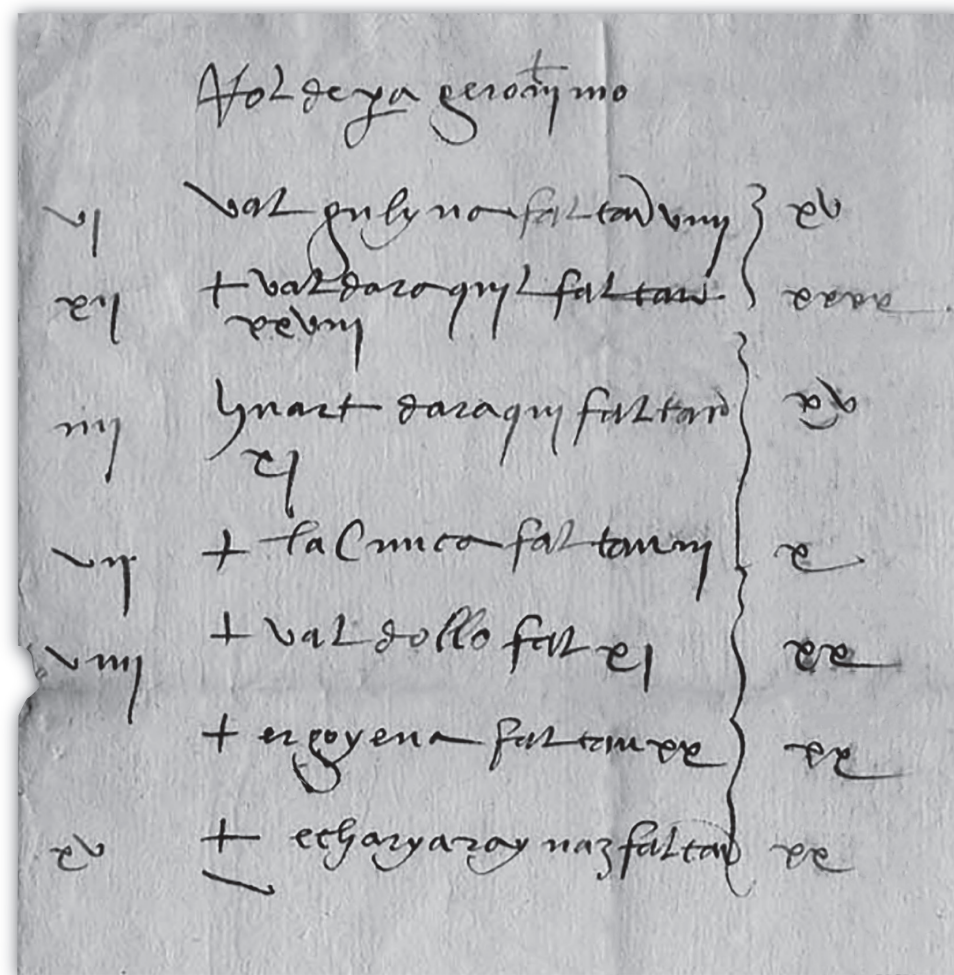 deya geronimo
vj val gulyna faltan viiij xv
xij + val daraquyl faltan xxxx
xxviij
iiij huart daraquj faltan xv
xj
vij + la Cunca faltan iij x
viiij + val dollo fal xj xx
+ ergoyena faltan xx xx
xv + echaryaraynaz faltan xx
v